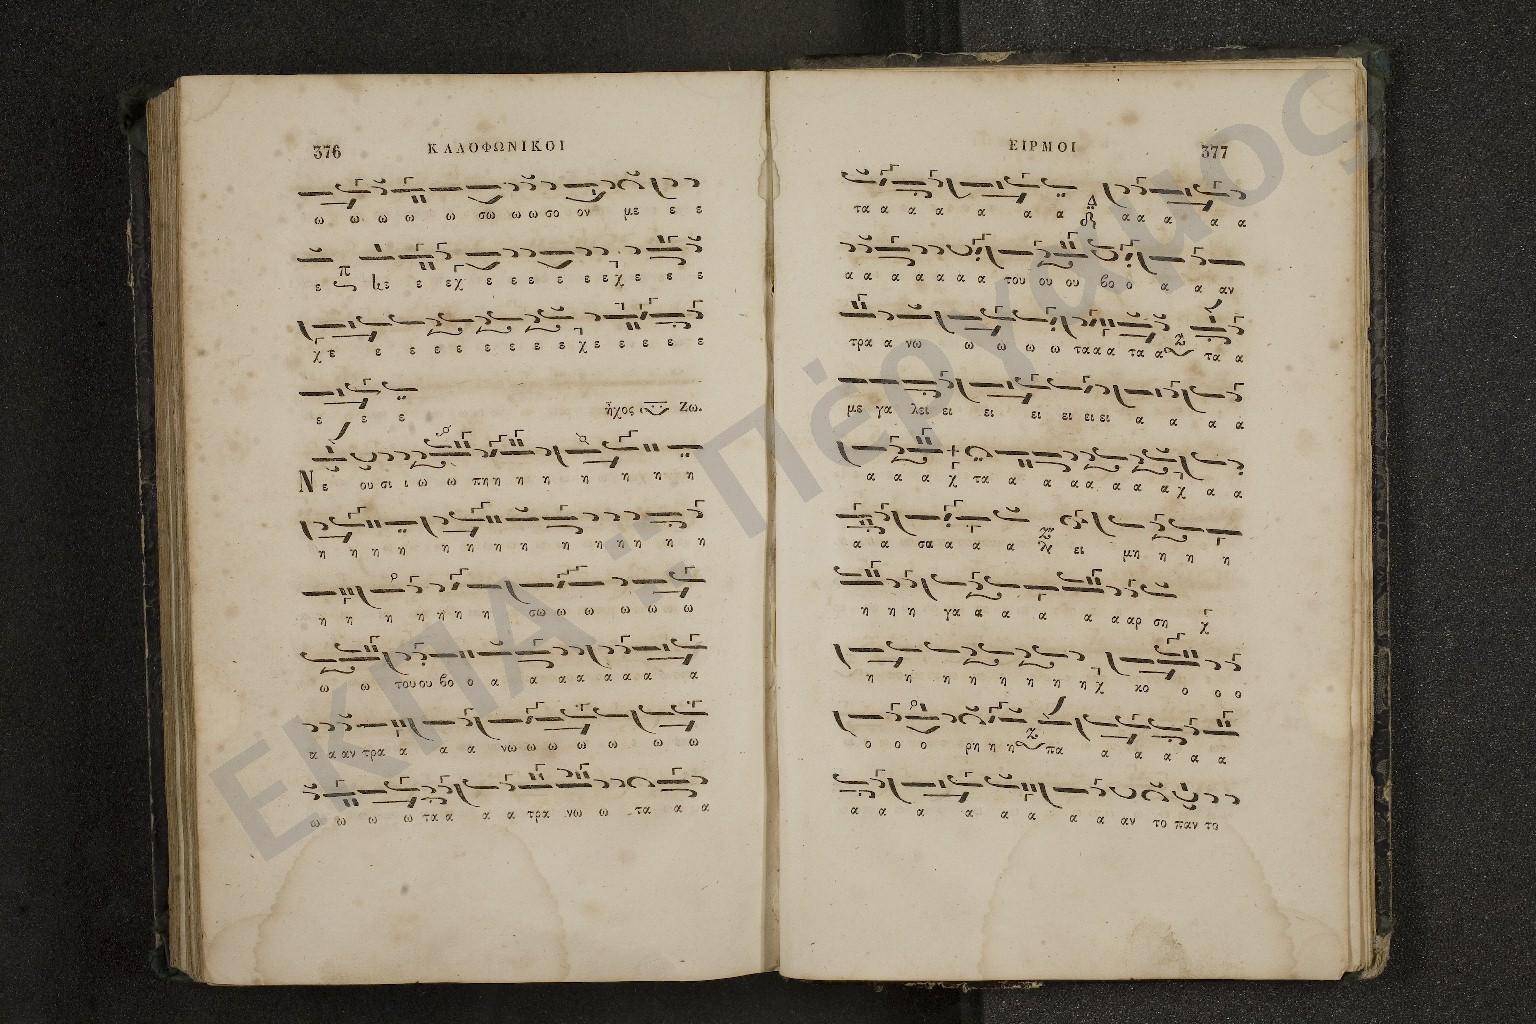 376 ΚΑΛΟΦΩΝΙΚΟΙ
ω ω ω ω ω σω ω ω σο ον με ε ε
ε π κε ε εχ ε ε ε ε ε ε χ ε ε ε ε
χ ε ε ε ε ε ε ε ε ε χ ε ε ε ε ε
ε ε ε ἦχος Ζω.
Νε ου σι ι ω ω πη η η η η η η η
η η η η η η η η η η η η
η η η η η η η σω ω ω ω ω ω
ω ω του ου βο ο α α α α α α α α α
α α αν τρα α α α νω ω ω ω ω ω ω
ω ω ω ω τα α α α τρα νω ω τα α α
ΕΙΡΜΟΙ 377
τα α α α α α α Δ α α α α α
α α α α α α α α του ου ου βο ο α α αν
τρα α νω ω ω ω ω τα α α τα α τα α
με γα λει ει ει ει ει ει ει α α α α
α α α χ τα α α α α α α α χ α α
α α σα α α α ει μη η η η
η η η γα α α α α α αρ ση χ
η η η η η η η η χ κο ο ο ο
ο ο ο ρη η η πα α α α α α
α α α α α α α α αν το παν το
ΕΚΠΑ : Πέργαμος